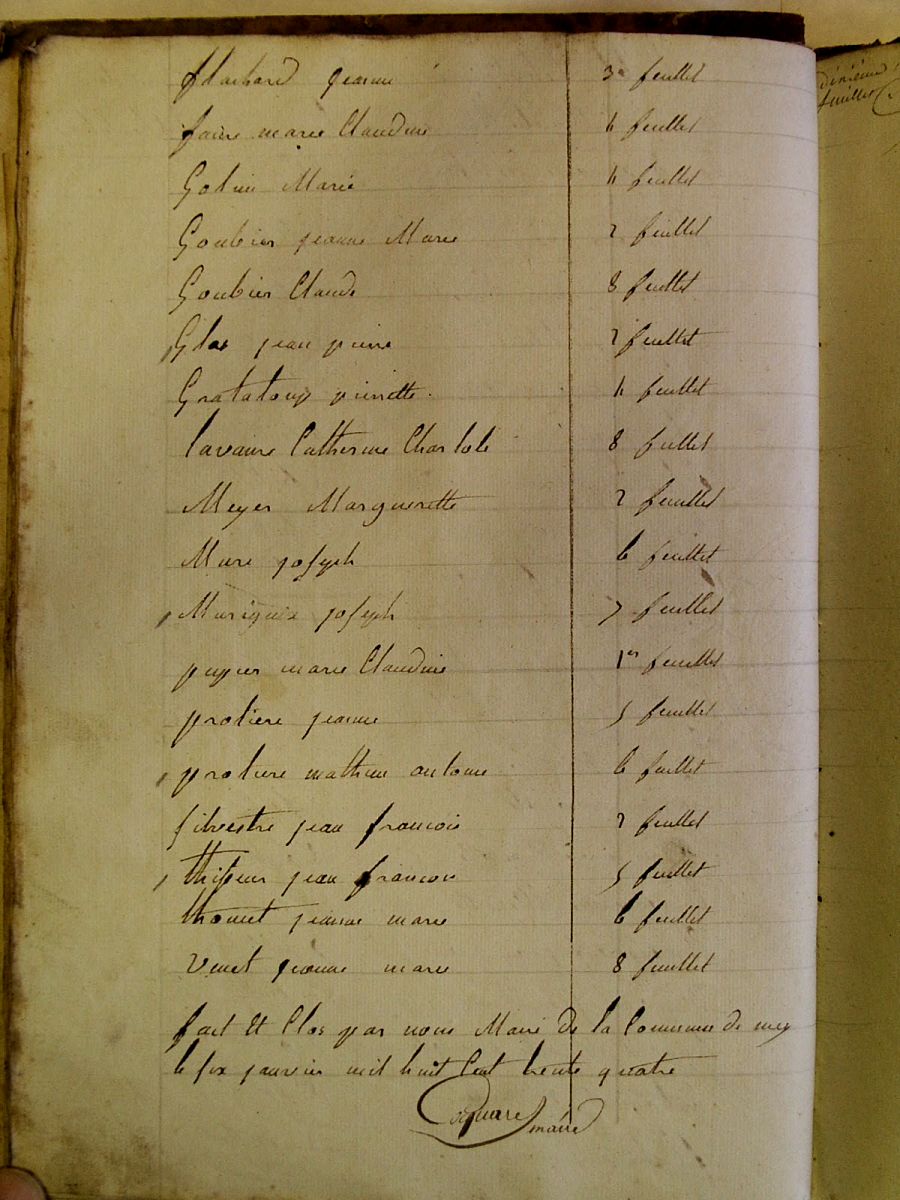 flachard jeanne 3e feuillet
faure marie Claudine 4 feuillet
Godin Marie 4 feuillet
Goubier jeanne Marie 2 feuillet
Goubier Claude 8 feuillet
Glas jean pierre 2 feuillet
Grataloup pierrette 4 feuillet
lavaure Catherine Charlote 8 feuillet
Meyer Marguerette 2 feuillet
Mure joseph 6 feuillet
joseph 7 feuillet
pupier marie Claudine 1er feuillet
protiere jeanne 5 feuillet
protiere mathieu antoine 6 feuillet
silvestre jean francois 2 feuillet
thisseur jean francois 5 feuillet
jeanne marie 6 feuillet
Vinet jeanne marie 8 feuillet
fait et Clos par nous Maire de la Commune de meys
le six janvier mil huit Cent trente quatre
Coquard maire
feuillet